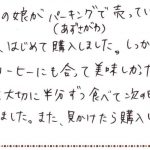 の娘がパーキングで売ってい
(あずさがわ)
、はじめて購入しました。しっか
ーヒーにも合って美味しかった
大切に半分ずつ食べて次の日
ました。また、見かけたら購入し